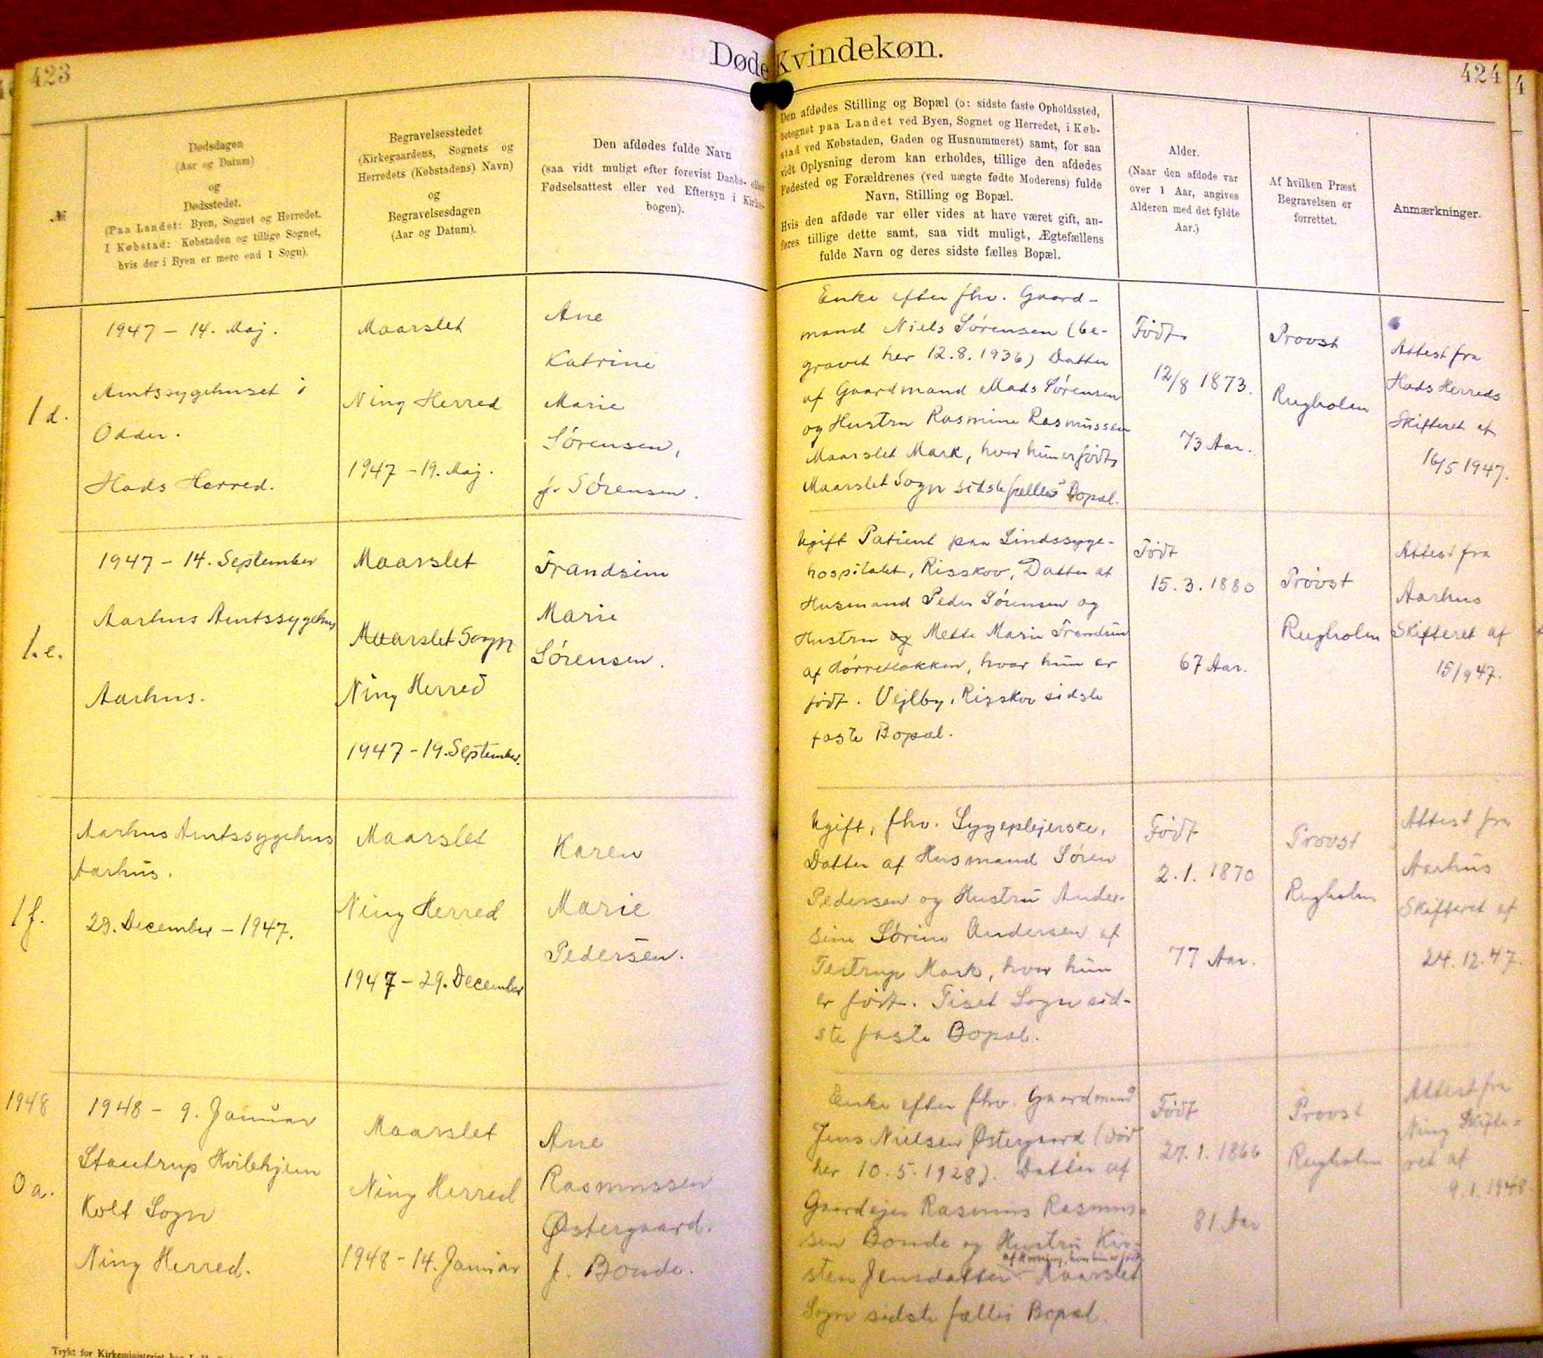 423
Døde Kvindekøn.
424
№
Dødsdagen
(Aar og Datum)
og
Dødsstedet.
(Paa Landet: Byen, Sognet og Herredet.
I Købstad: Købstaden og tillige Sognet,
hvis der i Byen er mere end 1 Sogn).
Begravelsesstedet
(Kirkegaardens, Sognets og
Herredets (Købstadens) Navn)
og
Begravelsesdagen
(Aar og Datum).
Den afdødes fulde Navn
(saa vidt muligt efter forevist Daabs- eller
Fødselsattest eller ved Eftersyn i Kirke-
bogen).
Den afdødes Stilling og Bopæl (ɔ: sidste faste Opholdssted,
betegnet paa Landet ved Byen, Sognet og Herredet, i Køb-
stad ved Købstaden, Gaden og Husnummeret) samt, for saa
vidt Oplysning derom kan erholdes, tillige den afdødes
Fødested og Forældrenes (ved uægte fødte Moderens) fulde
Navn, Stilling og Bopæl.
Hvis den afdøde var eller vides at have været gift, an-
føres tillige dette samt, saa vidt muligt, Ægtefællens
fulde Navn og deres sidste fælles Bopæl.
Alder.
(Naar den afdøde var
over 1 Aar, angives
Alderen med det fyldte
Aar.)
Af hvilken Præst
Begravelsen er
forrettet.
Anmærkninger.
1 d.
1947 - 14. Maj.
Amtssygehuset i
Odder.
Hads Herred.
Maarslet
Ning Herred
1947 - 19. Maj.
Ane
Katrine
Marie
Sørensen,
f. Sørensen.
Enke efter fhv. Gaard-
mand Niels Sørensen (be-
gravet her 12.8.1936) Datter
af Gaardmand Mads Sørensen
og Hustru Rasmine Rasmussen
Maarslet Mark, hvor hun er født,
Maarslet Sogn sidste fælles Bopæl.
Født
12/8 1873.
73 Aar.
Provst
Rugholm
Attest fra
Hads Herreds
Skifteret af
16/5 1947.
1. e.
1947 - 14. September
Aarhus Amtssygehus
Aarhus.
Maarslet
Maarslet Sogn
Ning Herred
1947 - 19. September.
Frandsine
Marie
Sørensen.
Ugift Patient paa Sindssyge-
hospitalet, Risskov, Datter af
Husmand Peder Sørensen og
Hustru og Mette Marie Frandsen
af hvor hun er
født. Vejlby, Risskov sidste
faste Bopæl.
Født
15. 3. 1880
67 Aar.
Provst
Rugholm
Attest fra
Aarhus
Skifteret af
15/9 47.
1 f.
Aarhus Amtssygehus
Aarhus.
23. December - 1947.
Maarslet
Ning Herred
1947 - 29. December
Karen
Marie
Pedersen.
Ugift, fhv. Sygeplejerske,
Datter af Husmand Søren
Pedersen og Hustru Ander-
sine Sørine Andersen af
Testrup Mark, hvor hun
er født. Tiset Sogn sid-
ste faste Bopæl.
Født
2. 1. 1870
77 Aar.
Provst
Rugholm
Attest fra
Aarhus
Skifteret af
24. 12. 47.
1948
0 a.
1948 - 9. Januar
Stautrup Hvilehjem
Kolt Sogn
Ning Herred.
Maarslet
Ning Herred
1948 - 14. Januar
Ane
Rasmussen
Østergaard.
f. Bonde.
Enke efter fhv. Gaardmand
Jens Nielsen Østergaard (død
her 10.5.1928). Datter af
Gaardejer Rasmus Rasmus-
sen Bonde og Hustru Kir-
af Hørning, hvor hun er født
sten Jensdatter Maarslet
Sogn sidste fælles Bopæl.
Født
27. 1. 1866
81 Aar
Provst
Rugholm
Attest fra
Ning Skifte-
ret af
9. 1. 1948.
Trykt for Kirkeministeriet